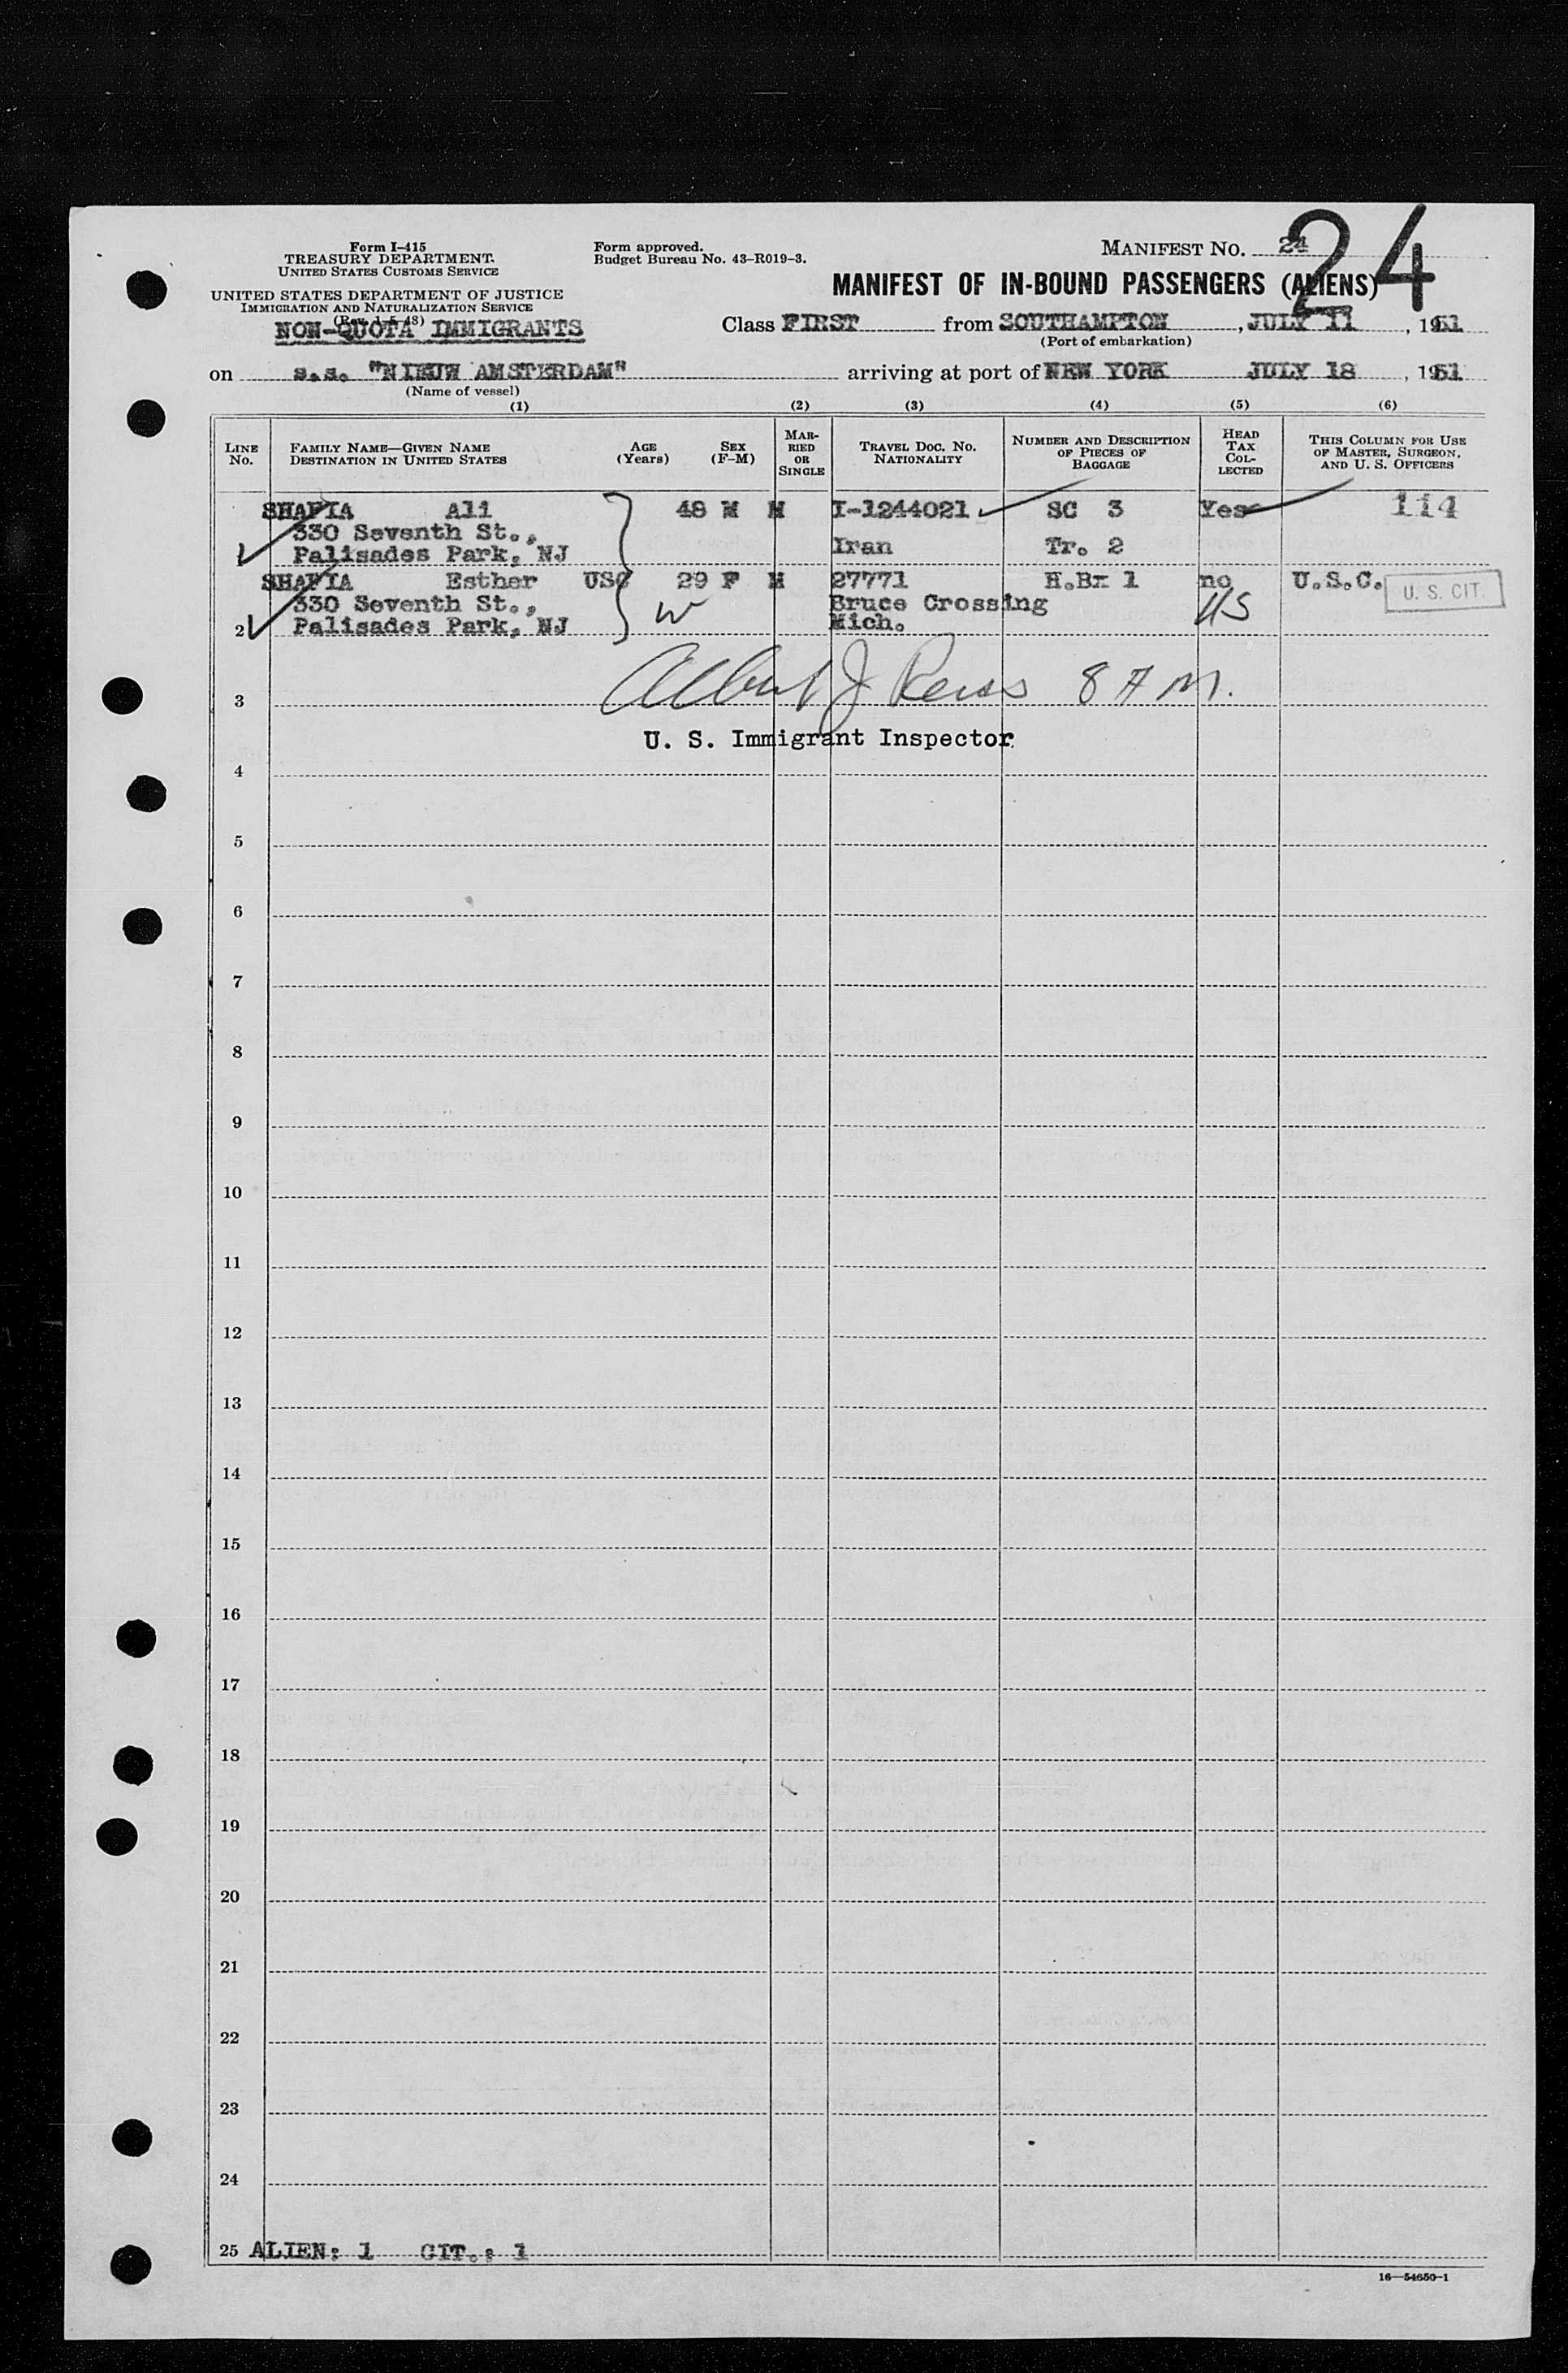 Form I-415
TREASURY DEPARTMENT
UNITED STATES CUSTOMS SERVICE
UNITED STATES DEPARTMENT OF JUSTICE
IMMIGRATION AND NATURALIZATION SERVICE
(Rev. 1-5-48)
NON-QUOTA IMMIGRANTS
Form approved.
Budget Bureau No. 43-R019-3.
MANIFEST NO. 24
24
MANIFEST OF IN-BOUND PASSENGERS (ALIENS)
Class FIRST from SOUTHAMPTON, JULY 11, 1951
(Port of embarkation)
on s.s. "NIEUW AMSTERDAM" arriving at port of NEW YORK JULY 18, 1951
(Name of vessel)
(1) (2) (3) (4) (5) (6)
LINE NO.
FAMILY NAME—GIVEN NAME
DESTINATION IN UNITED STATES
AGE (Years)
SEX (F-M)
MARRIED OR SINGLE
TRAVEL DOC. NO.
NATIONALITY
NUMBER AND DESCRIPTION OF PIECES OF BAGGAGE
HEAD TAX COLLECTED
THIS COLUMN FOR USE OF MASTER, SURGEON, AND U. S. OFFICERS
SHAFIA Ali 48 M M I-1244021 SC 3 Yes 114
330 Seventh St.,
1 Palisades Park, NJ Iran Tr. 2
SHAFIA Esther USC 29 F M 27771 H.Bx 1 no U.S.C. U. S. CIT.
330 Seventh St., W Bruce Crossing US
2 Palisades Park, NJ Mich.
3 Albert J Reiss 8 A M.
U. S. Immigrant Inspector
4
5
6
7
8
9
10
11
12
13
14
15
16
17
18
19
20
21
22
23
24
25 ALIEN: 1 CIT.: 1
16—54650-1